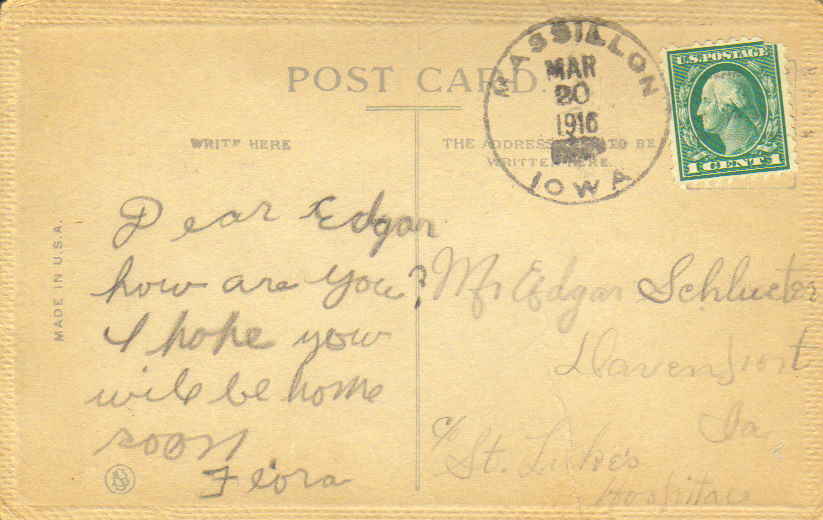 POST CARD.
WRITE HERE
THE ADDRESS TO BE
WRITTEN HERE.
MASSILLON
MAR
20
1916
IOWA
U.S. POSTAGE
1 CENT 1
MADE IN U.S.A.
Dear Edgar
how are you?
I hope you
will be home
soon.
Flora
Mr Edgar Schlueter
Davenport
Ia
c/o St. Luke's
Hospital